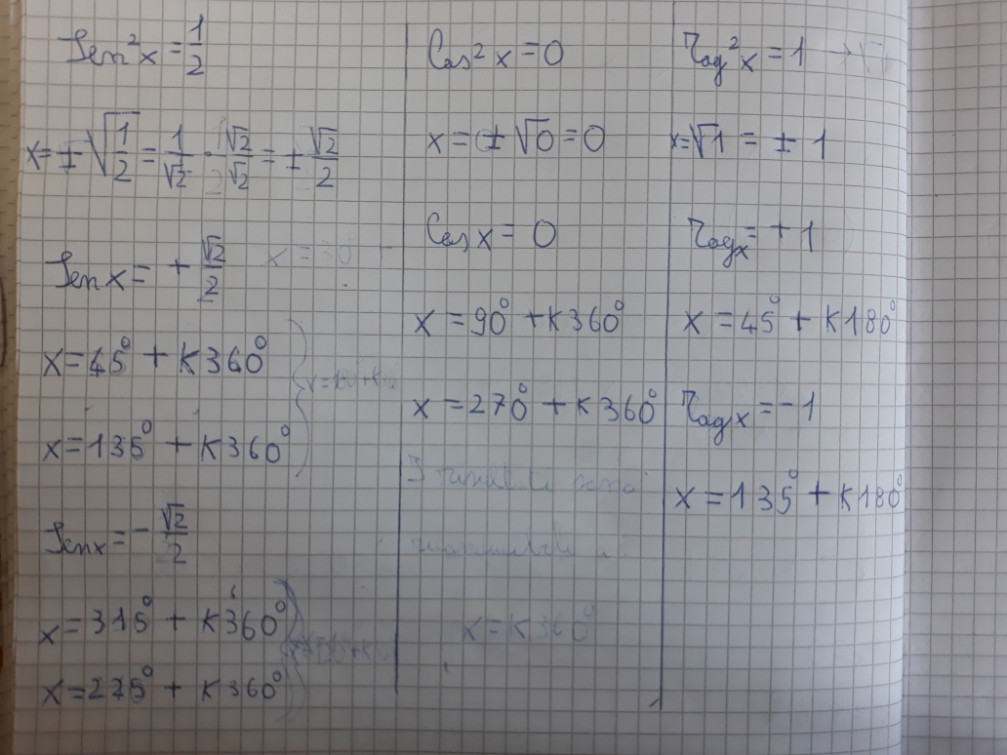 Sen²x = 1/2
x = ± √(1/2) = 1/√2 · √2/√2 = ± √2/2
Sen x = + √2/2
x = 45° + K360°
x = 135° + K360°
Sen x = - √2/2
x = 315° + K360°
x = 225° + K360°
Cos²x = 0
x = ± √0 = 0
Cos x = 0
x = 90° + K360°
x = 270° + K360°
x = K360°
Tag²x = 1
x = √1 = ± 1
Tag x = + 1
x = 45° + K180°
Tag x = - 1
x = 135° + K180°